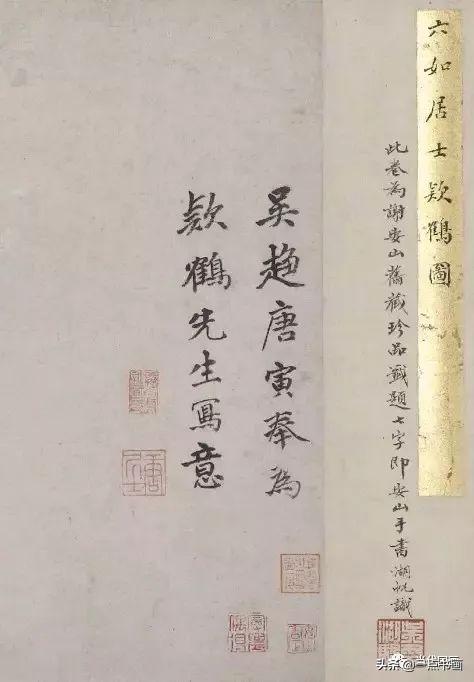 六如居士欵鶴圖
此卷為謝安山舊藏珍品籤題七字即安山手書湖帆識
吳趍唐寅奉為
欵鶴先生寫意
当代国画
头条